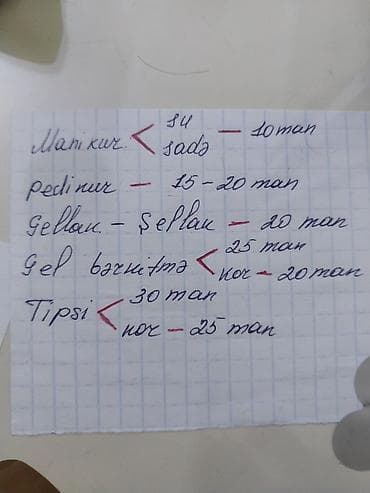 su
Manikur < — 10 man
sadə
pedikur — 15-20 man
Gellak - Şellak — 20 man
25 man
Gel bərkitmə <
kor — 20 man
30 man
Tipsi <
kor — 25 man